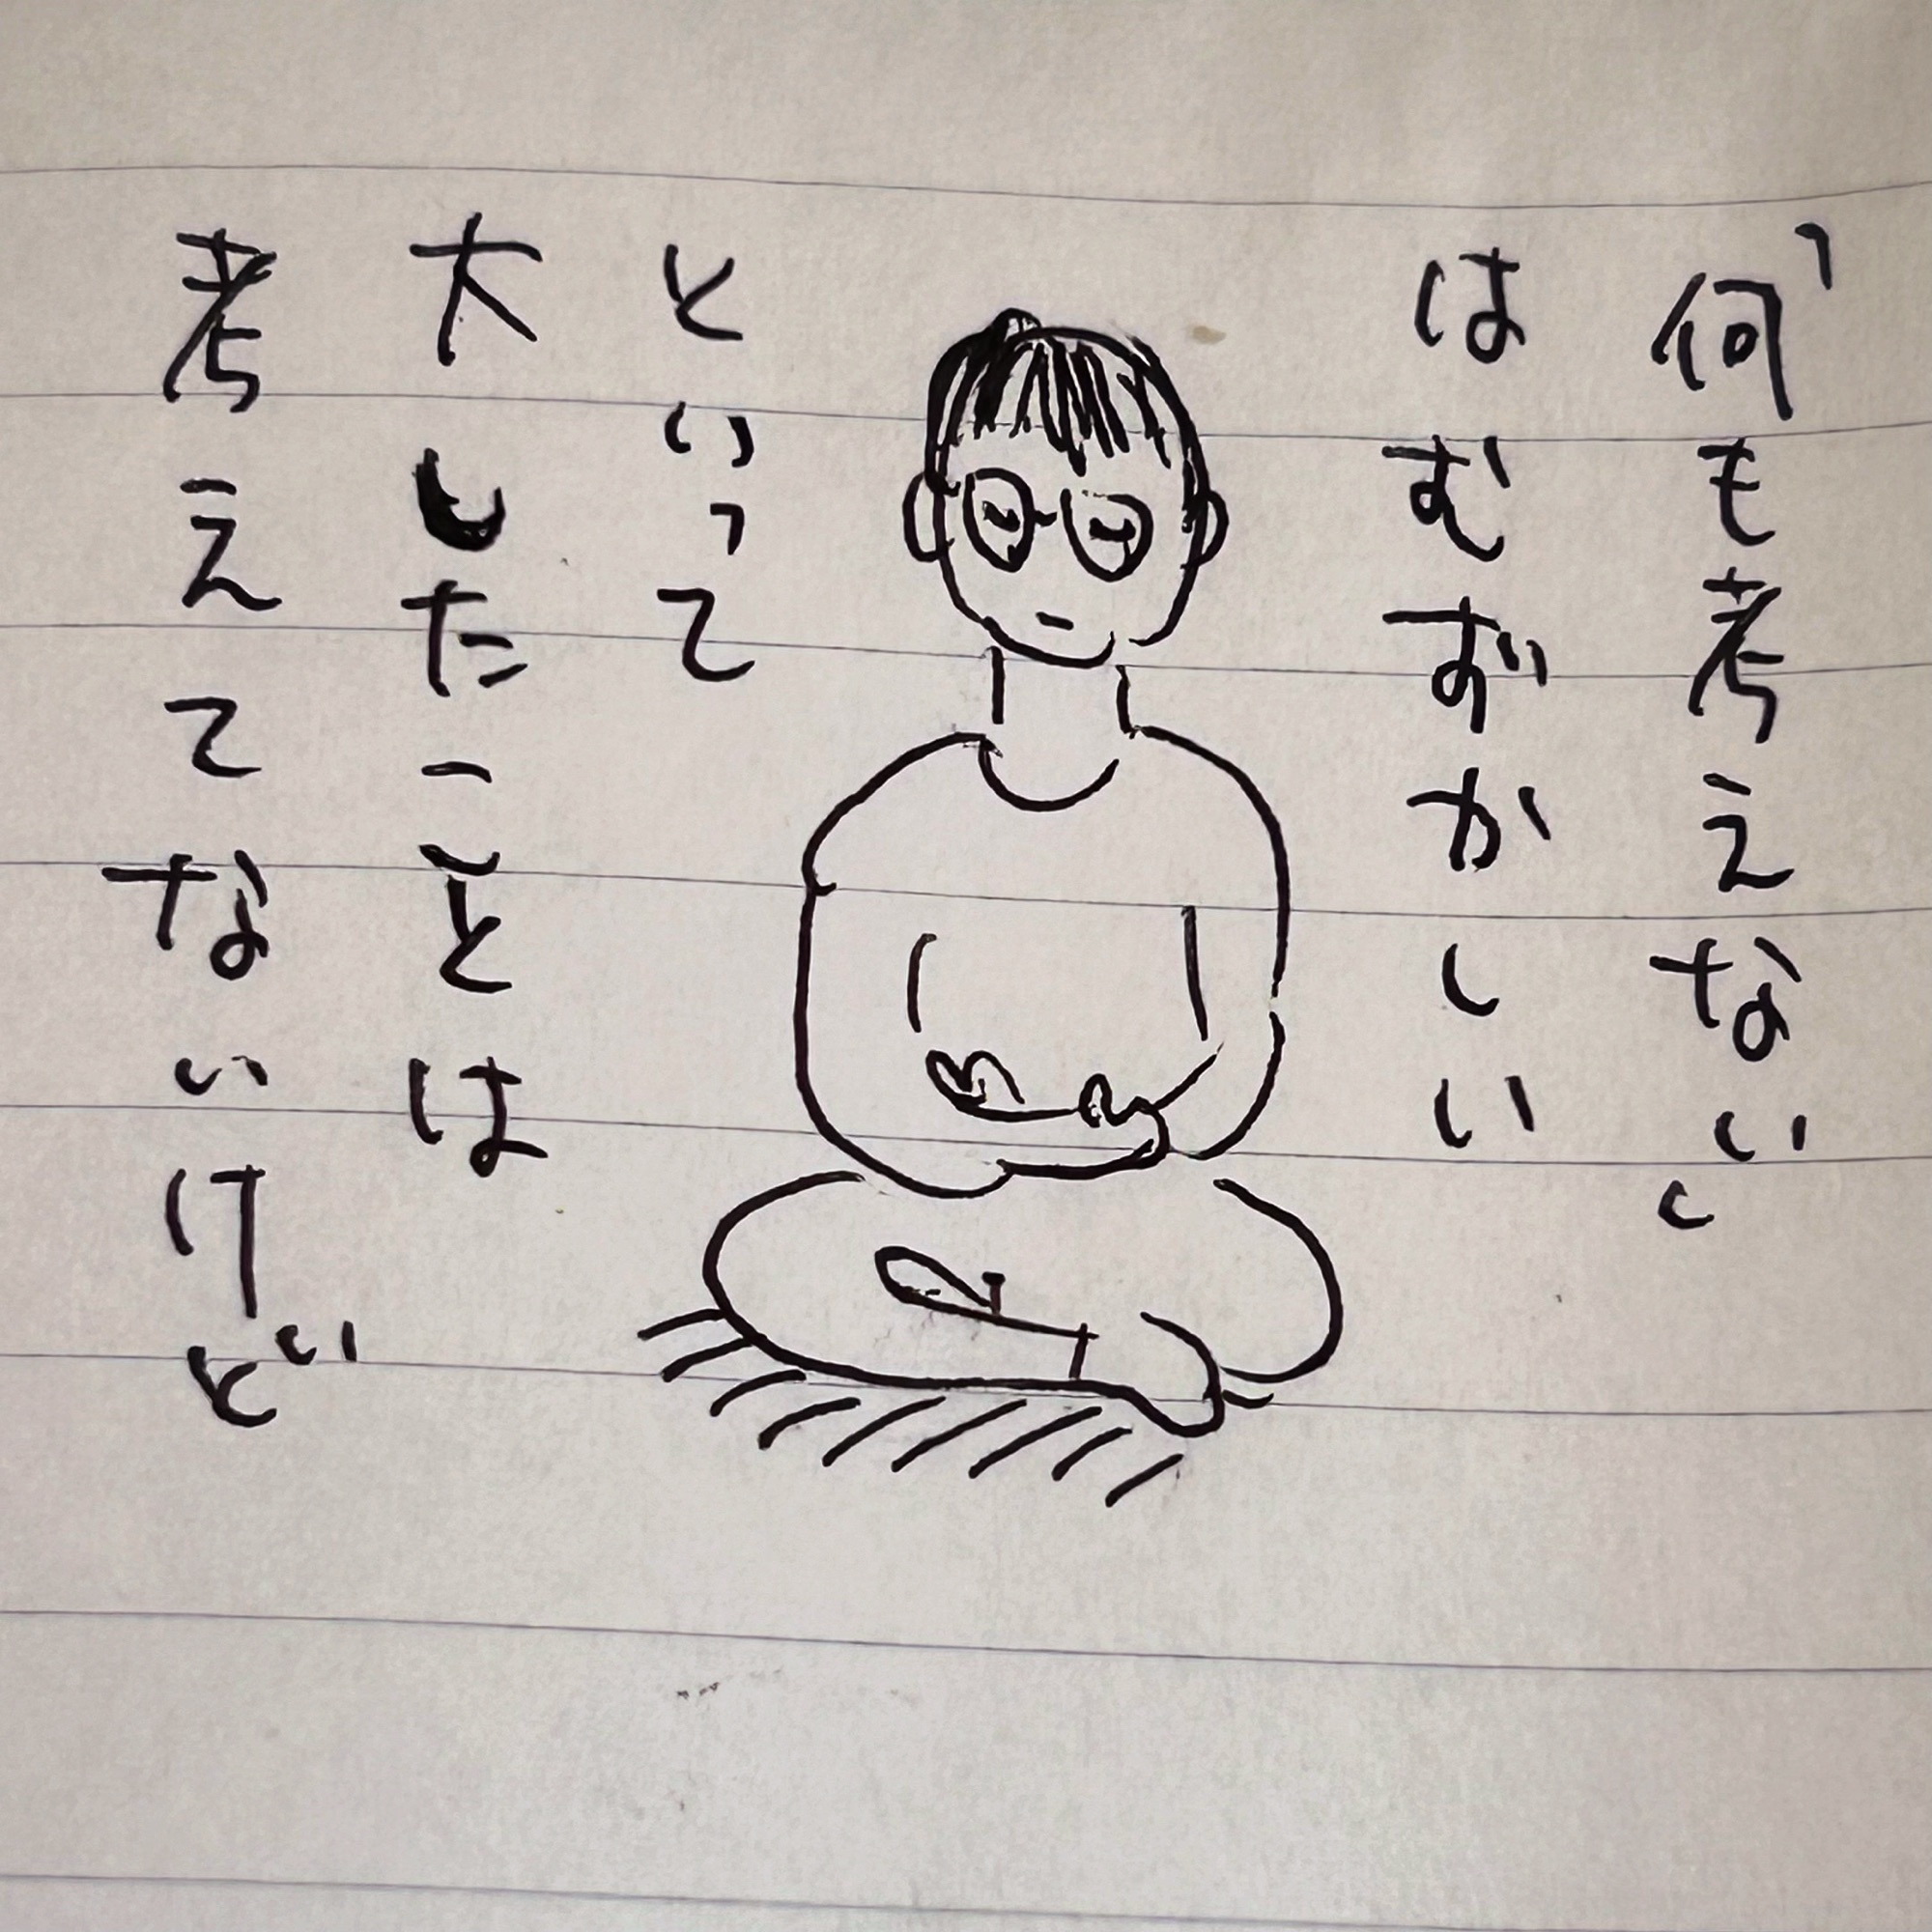 「何も考えない」
はむずかしい
といって
大したことは
考えてないけど